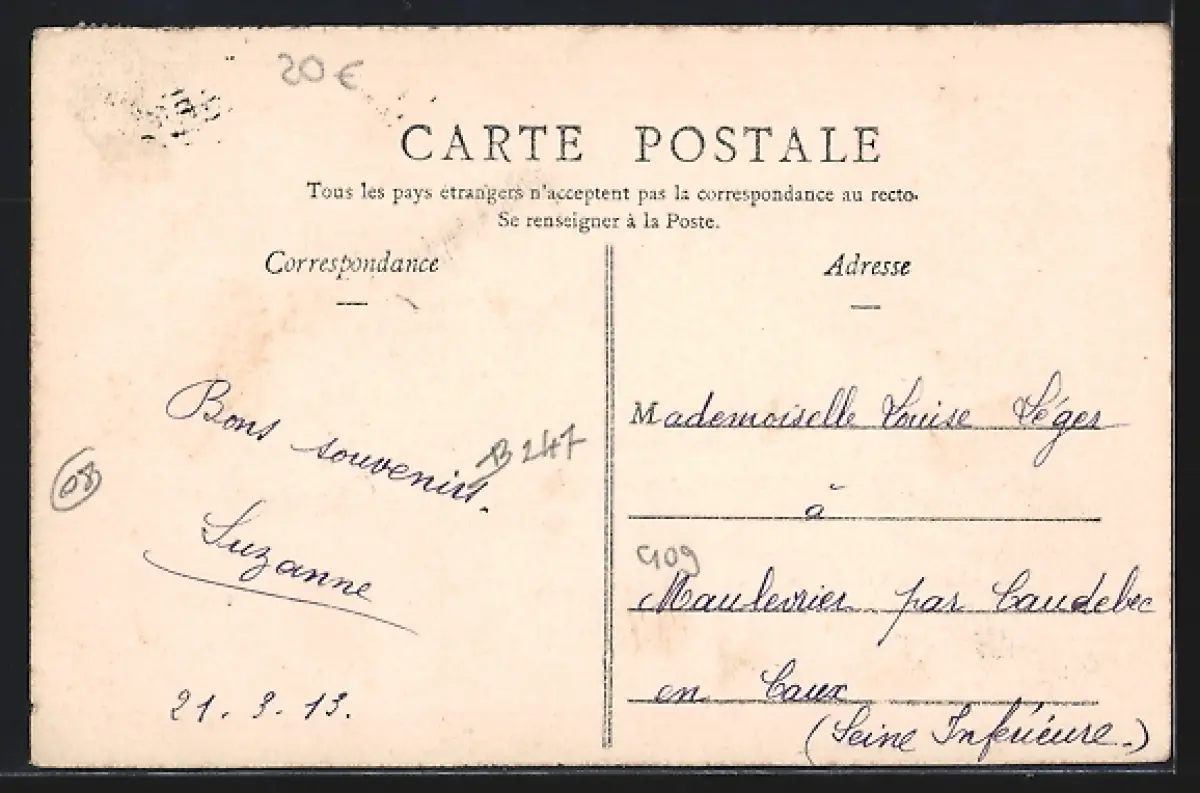 20 €
CARTE POSTALE
Tous les pays étrangers n'acceptent pas la correspondance au recto.
Se renseigner à la Poste.
Correspondance
Bons souvenirs.
Suzanne
21. 3. 13.
B 247
08
Adresse
Mademoiselle Louise Léger
à
Maulevrier par Caudebec
en Caux
(Seine Inférieure.)